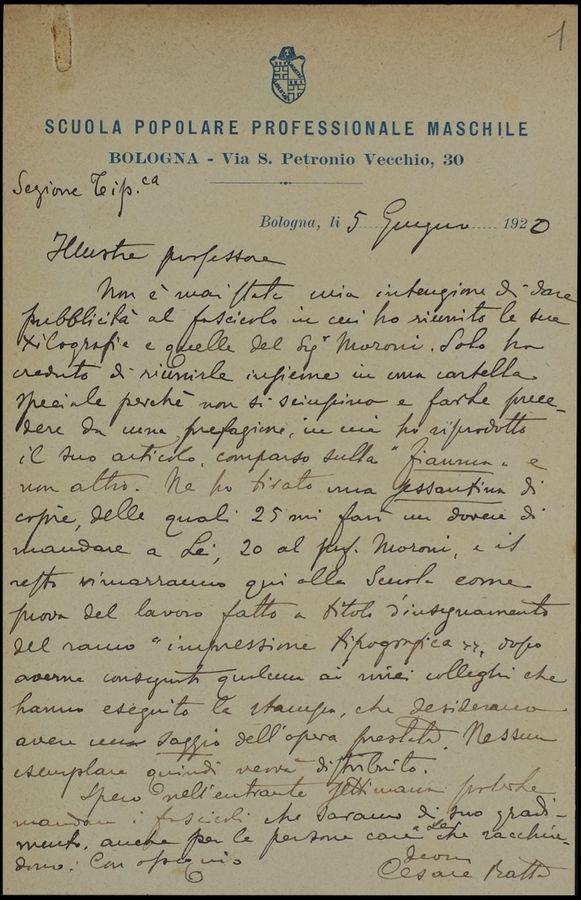 1
SCUOLA POPOLARE PROFESSIONALE MASCHILE
BOLOGNA - Via S. Petronio Vecchio, 30
Sezione Tip.ca
Bologna, li 5 Giugno 1920
Illustre professore
Non è mai stata mia intenzione di dare
pubblicità al fascicolo in cui ho riunito le sue
xilografie e quelle del Sigr Moroni. Solo ho
creduto di riunirle insieme in una cartella
speciale perchè non si sciupino e farle prece-
dere da una prefazione, in cui ho riprodotto
il suo articolo comparso sulla "fiamma" e
non altro. Ne ho tirato una sessantina di
copie, delle quali 25 mi farò un dovere di
mandare a Lei, 20 al prof. Moroni, e il
resto rimarranno qui alla Scuola come
prova del lavoro fatto a titolo d'insegnamento
del ramo "impressione tipografica", dopo
averne consegnato qualcuna ai miei colleghi che
hanno eseguito la stampa, che desiderano
avere un saggio dell'opera prestata. Nessun
esemplare quindi verrà distribuito.
Spero nell'entrante settimana poterle
mandare i fascicoli che saranno di suo gradi-
mento, anche per le persone care a Lei che racchiu-
dono. Con ossequio
devm
Cesare Ratta